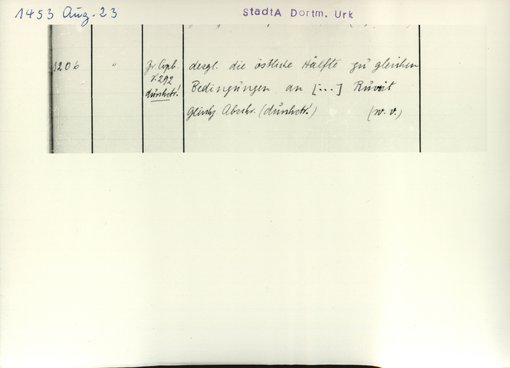 1453 Aug. 23
StadtA Dortm. Urk
1206 " Gr. Copb. desgl. die östliche Hälfte zu gleichen
S. 292 Bedingungen an [...] Ruwit
durchstr.! Gleichz. Abschr. (durchstr.) (w. v.)